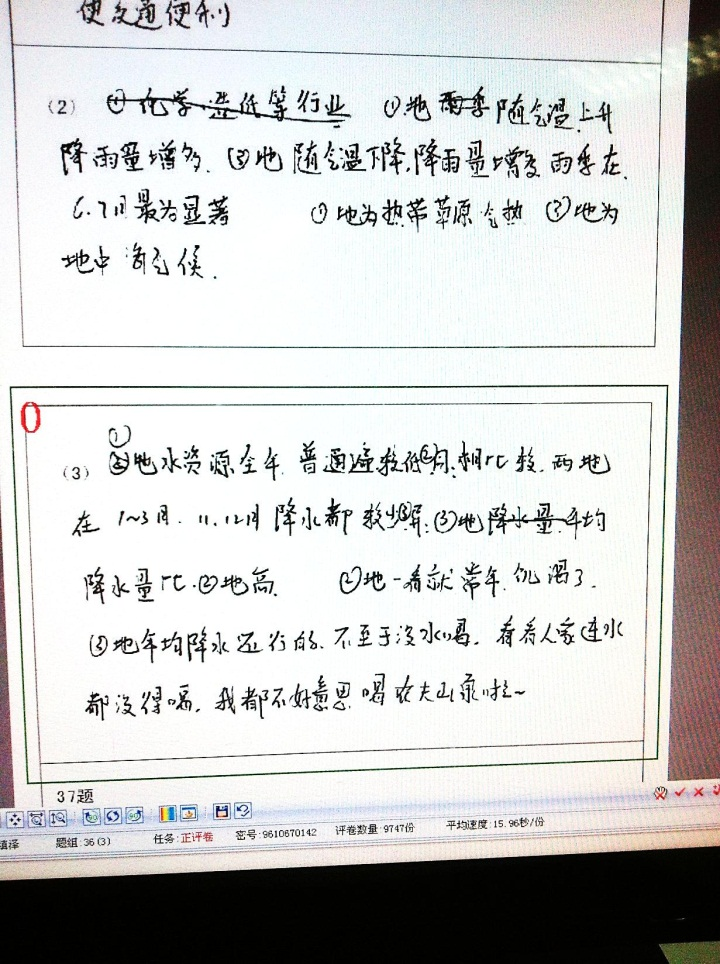 使交通便利
(2) ④化学、造纸等行业 ①地雨季随气温上升
降雨量增多. ③地 随气温下降,降雨量增多 雨季在
6.7月最为显著 ①地为热带草原气热 ③地为
地中海气候.
0
①
(3) ②地水资源全年 普通遍较低 ②月: 相比较. 两地
在 1~3月. 11.12月 降水都 较 ③地降水量.平均
降水量比.②地高. ②地一看就常年 饥渴了.
③地年均降水还行的、不至于没水喝. 看着人家连水
都没得喝, 我都不好意思喝农夫山泉啦~
37题
题组:36(3) 任务:正评卷 密号:9610670142 评卷数量:9747份 平均速度:15.96秒/份